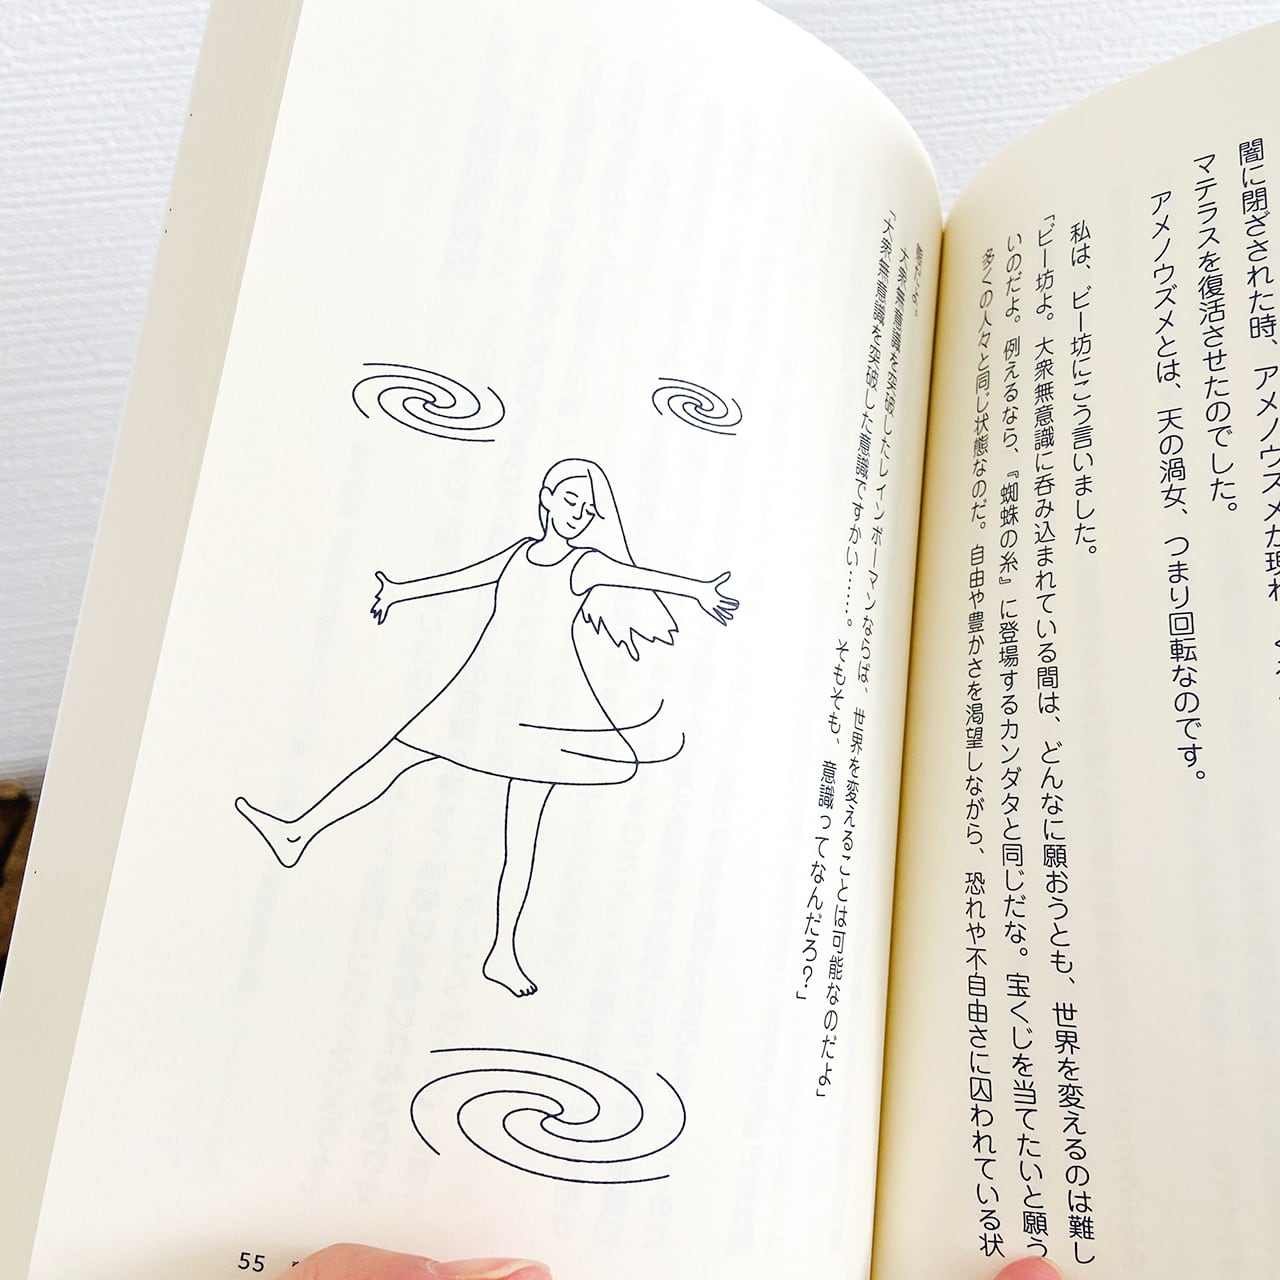 闇に閉ざされた時、アメノウズメが現れ
マテラスを復活させたのでした。
アメノウズメとは、天の渦女、つまり回転なのです。
私は、ビー坊にこう言いました。
「ビー坊よ。大衆無意識に呑み込まれている間は、どんなに願おうとも、世界を変えるのは難し
いのだよ。例えるなら、『蜘蛛の糸』に登場するカンダタと同じだな。宝くじを当てたいと願う
多くの人々と同じ状態なのだ。自由や豊かさを渇望しながら、恐れや不自由さに囚われている状
態だよ。
大衆無意識を突破したレインボーマンならば、世界を変えることは可能なのだよ」
「大衆無意識を突破した意識ですかい……。そもそも、意識ってなんだろ？」
55